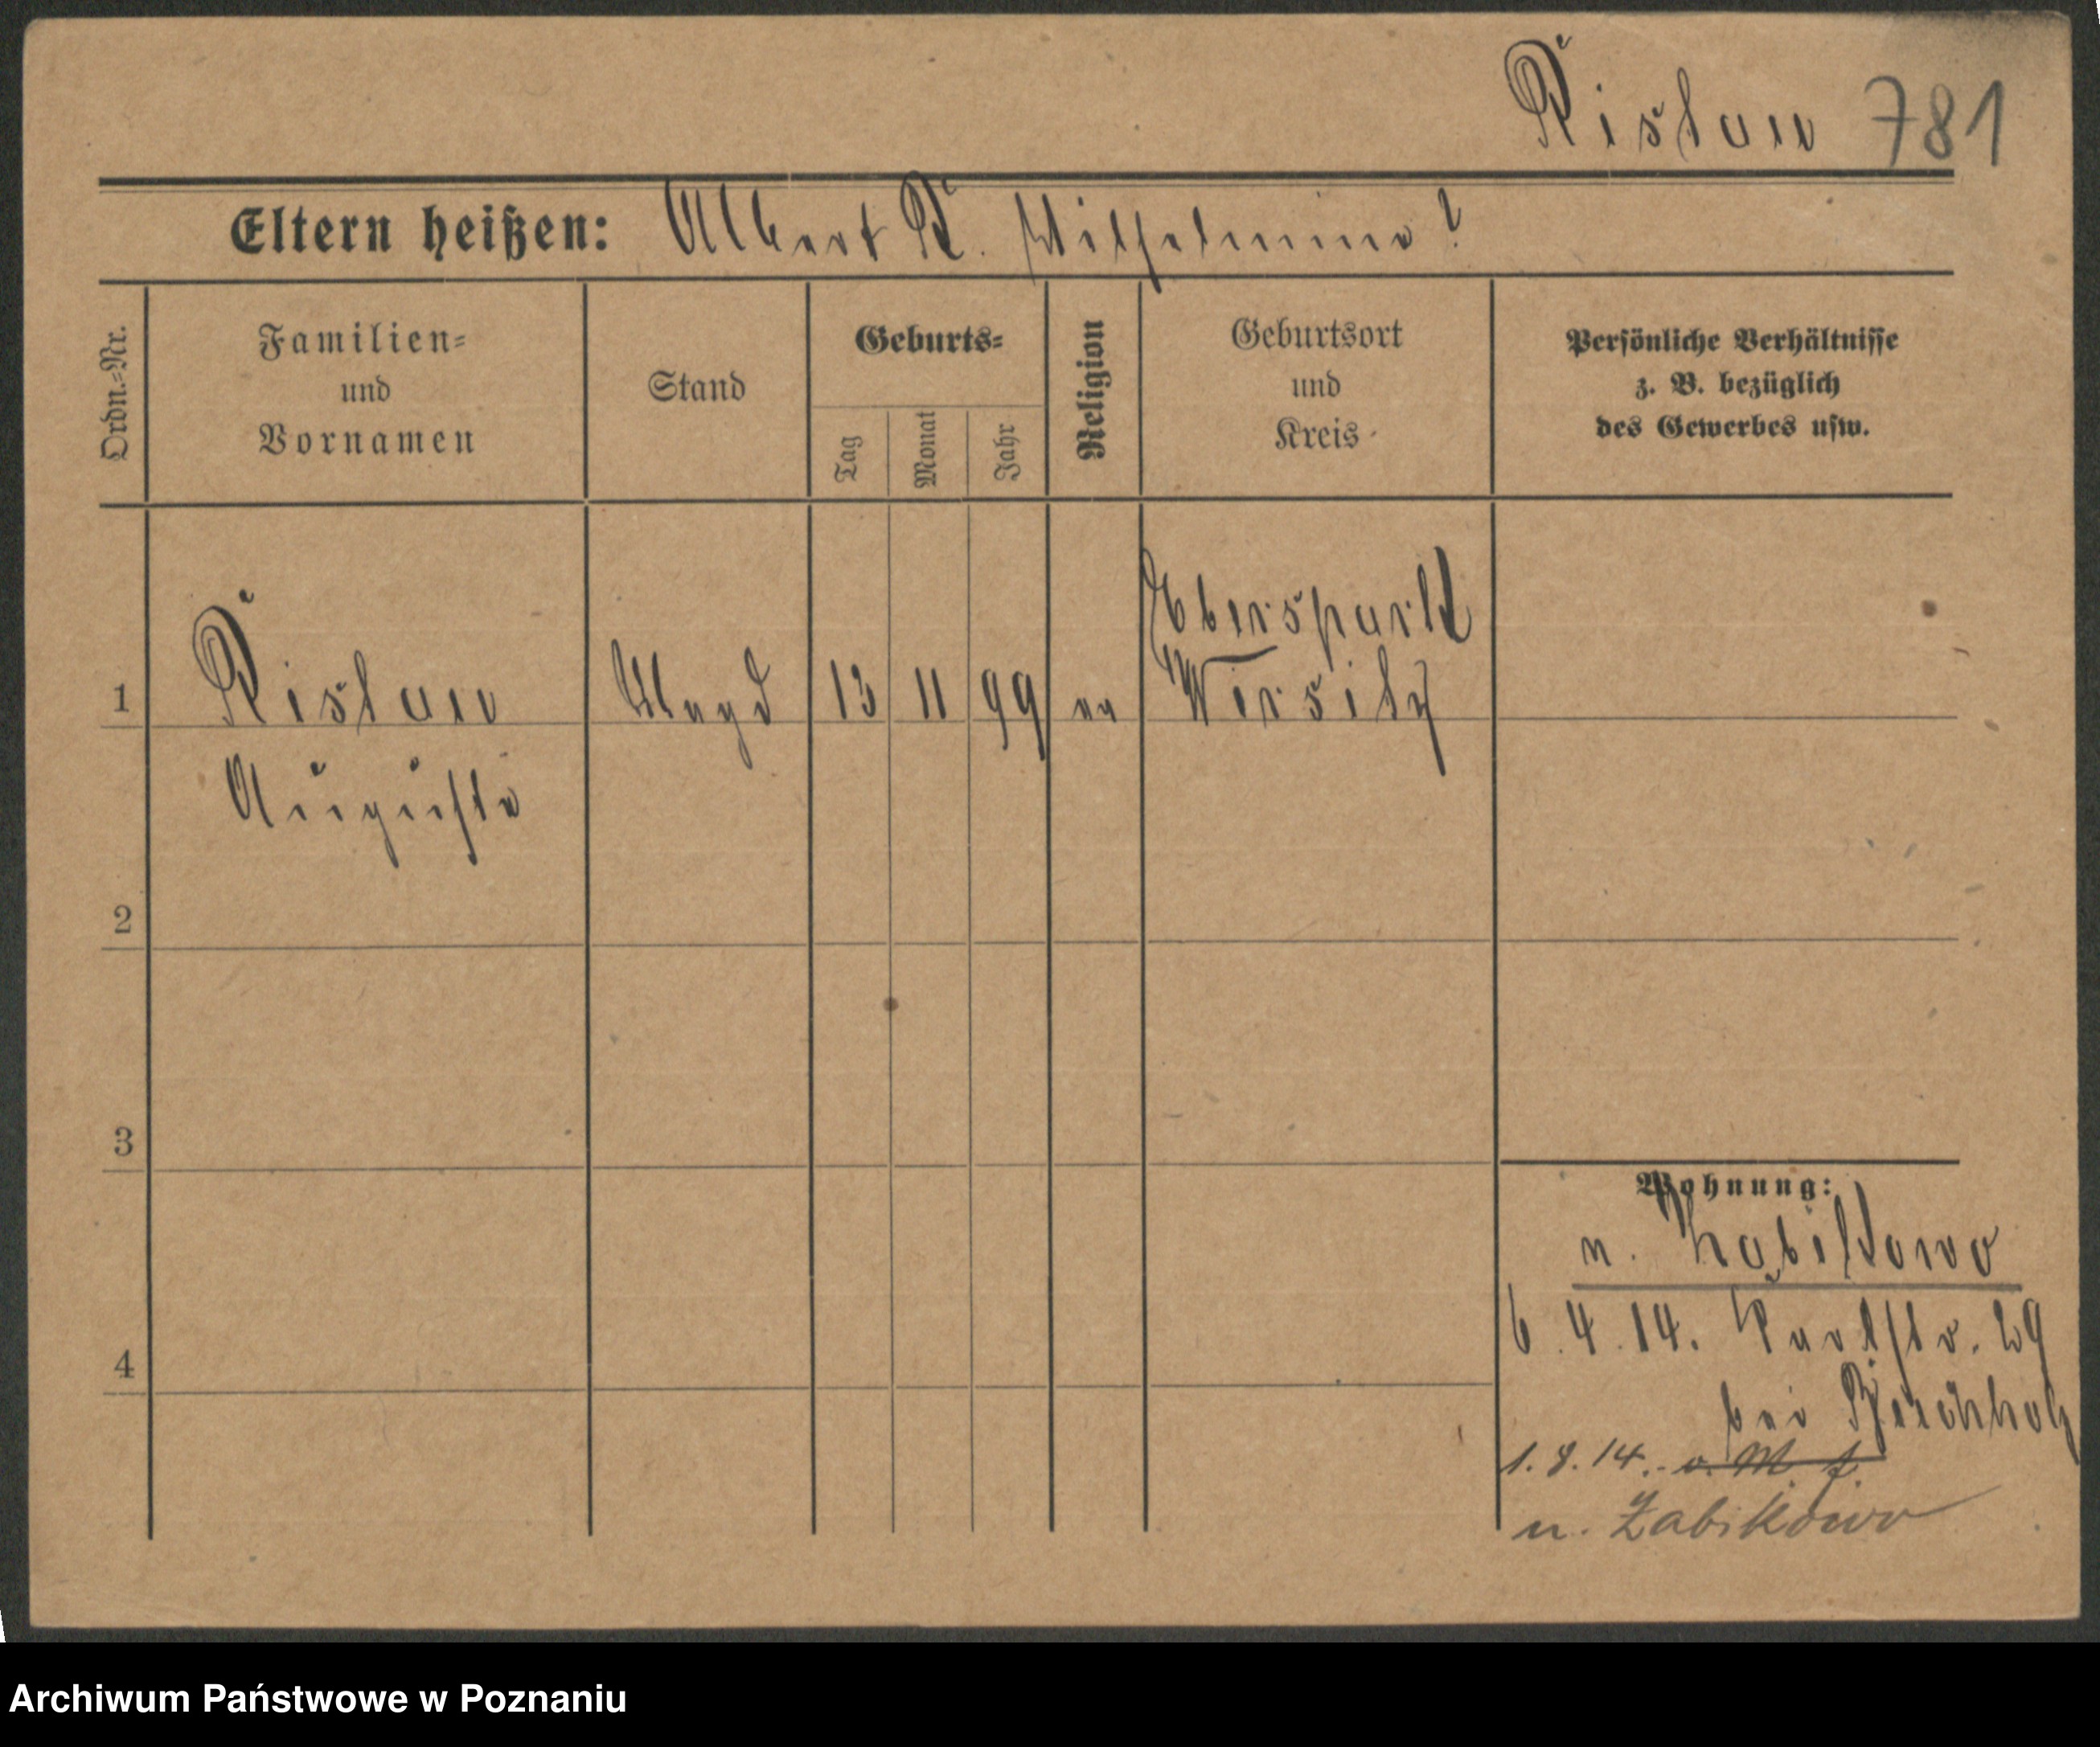 Ristau 781
Eltern heißen: Albert R. Wilhelmine ?
Ordn.-Nr.
Familien-
und
Vornamen
Stand
Geburts-
Tag
Monat
Jahr
Religion
Geburtsort
und
Kreis
Persönliche Verhältnisse
z. B. bezüglich
des Gewerbes usw.
1 Ristau Magd 13 11 99 ev
Eberspark
Wirsitz
Auguste
2
3
4
Wohnung:
n. Zabikowo
6.4.14. Parkstr. 29
bei
1.8.14. v. M. f.
n. Zabikowo
Archiwum Państwowe w Poznaniu